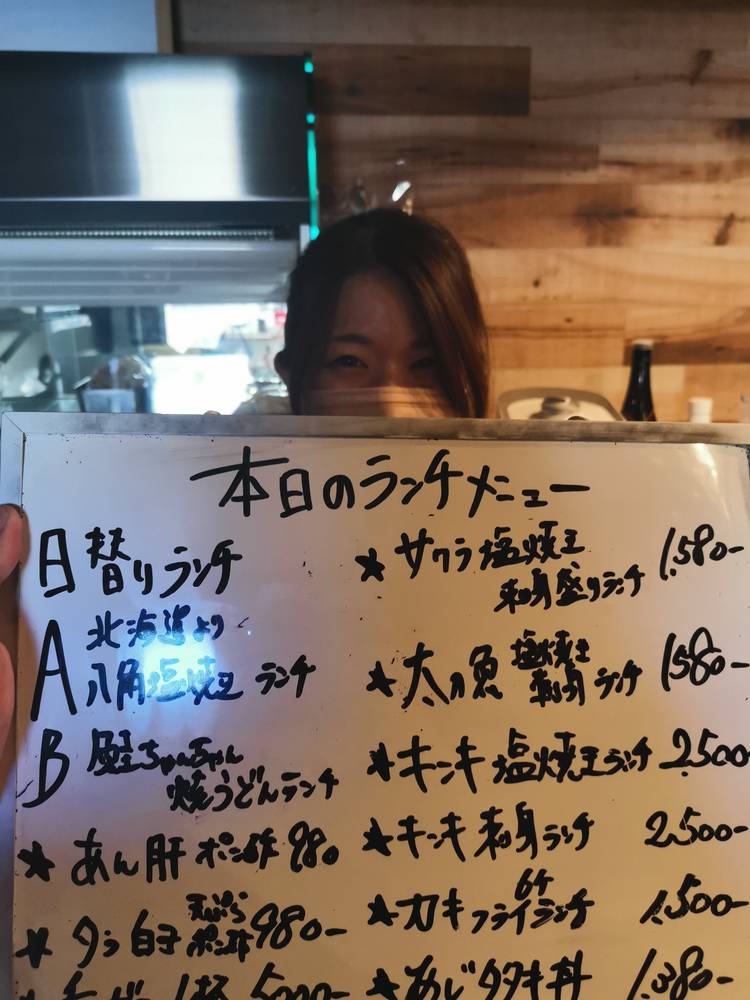 本日のランチメニュー
日替りランチ
A 北海道より
八角塩焼き ランチ
B 鮭ちゃんちゃん
焼うどんランチ
★ あん肝 ポン酢 980
★ タラ白子 天ぷら ポン酢 980-
1杯 5000-
★ サワラ塩焼き 1,580-
刺身盛りランチ
★ 太刀魚 塩焼き 刺身 ランチ 1580-
★ キンキ 塩焼きランチ 2,500
★ キンキ 刺身ランチ 2,500-
★ カキフライランチ 6ケ 1,500-
★ あじタタキ丼 1,380-